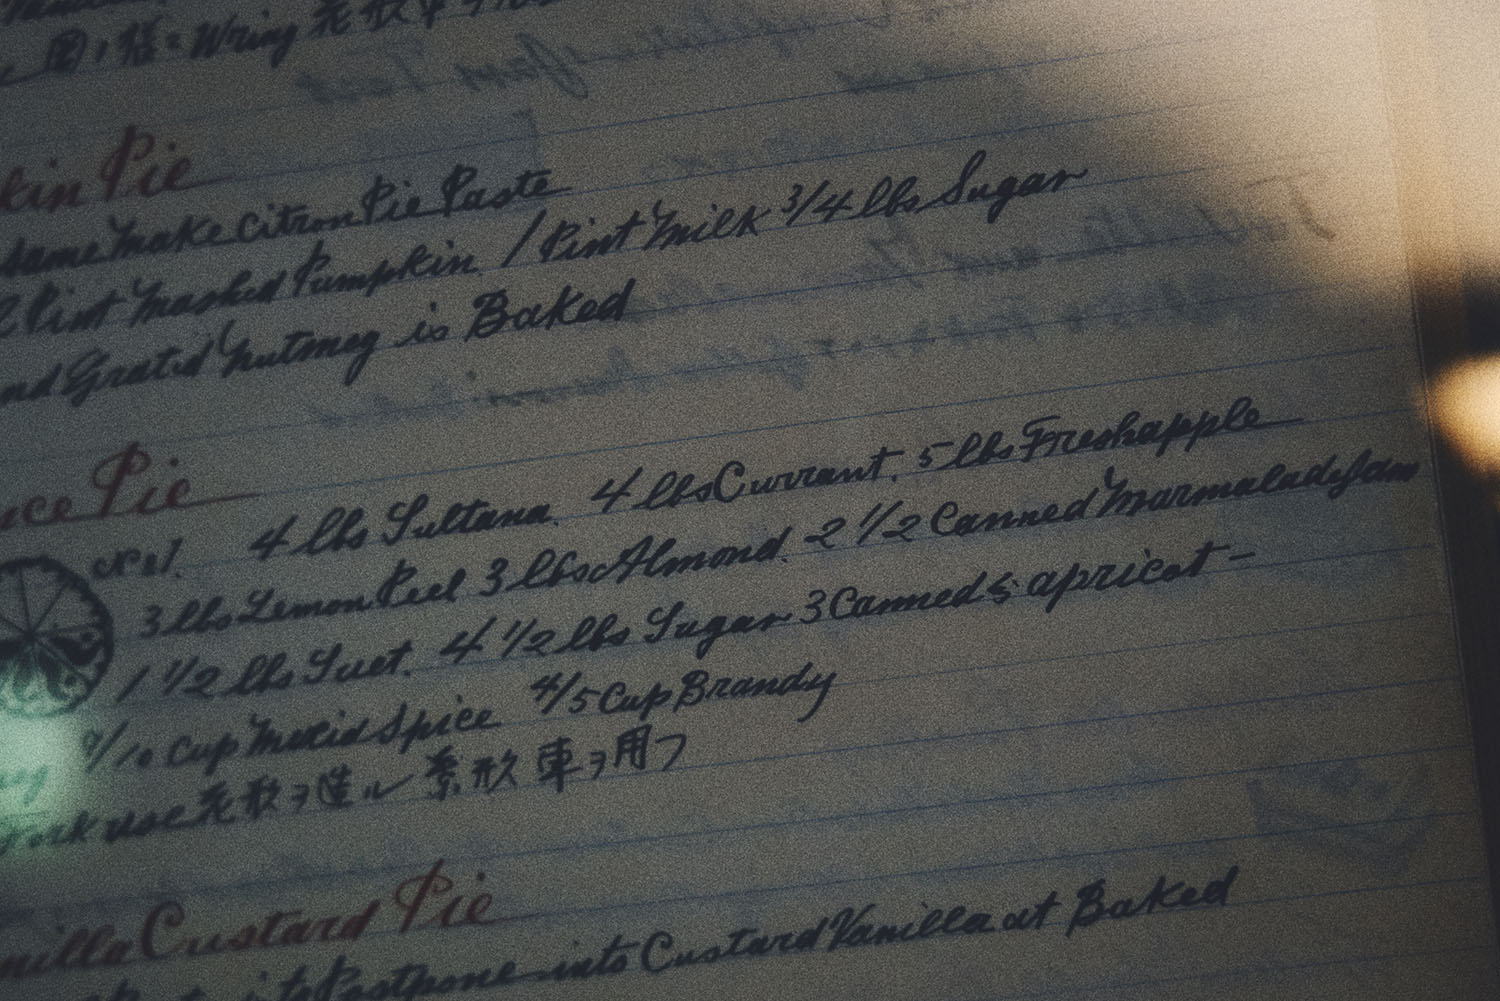 Wring
kin Pie
Same Make Citron Pie Paste
Pint Mashed Pumpkin. 1 Pint Milk 3/4 lbs Sugar
and Gratid Nutmeg is Baked
ce Pie
4 lbs Sultana. 4 lbs Currant. 5 lbs Freshapple
3 lbs Lemon Peel 3 lbs Almond. 2 1/2 Canned Marmalade Jam
1 1/2 lbs Suet. 4 1/2 lbs Sugar 3 Canned apricot -
9/10 Cup Mixid Spice 4/5 Cup Brandy
use 花形ヲ造ル 車ヲ用フ
nilla Custard Pie
Postpone into Custard Vanilla at Baked